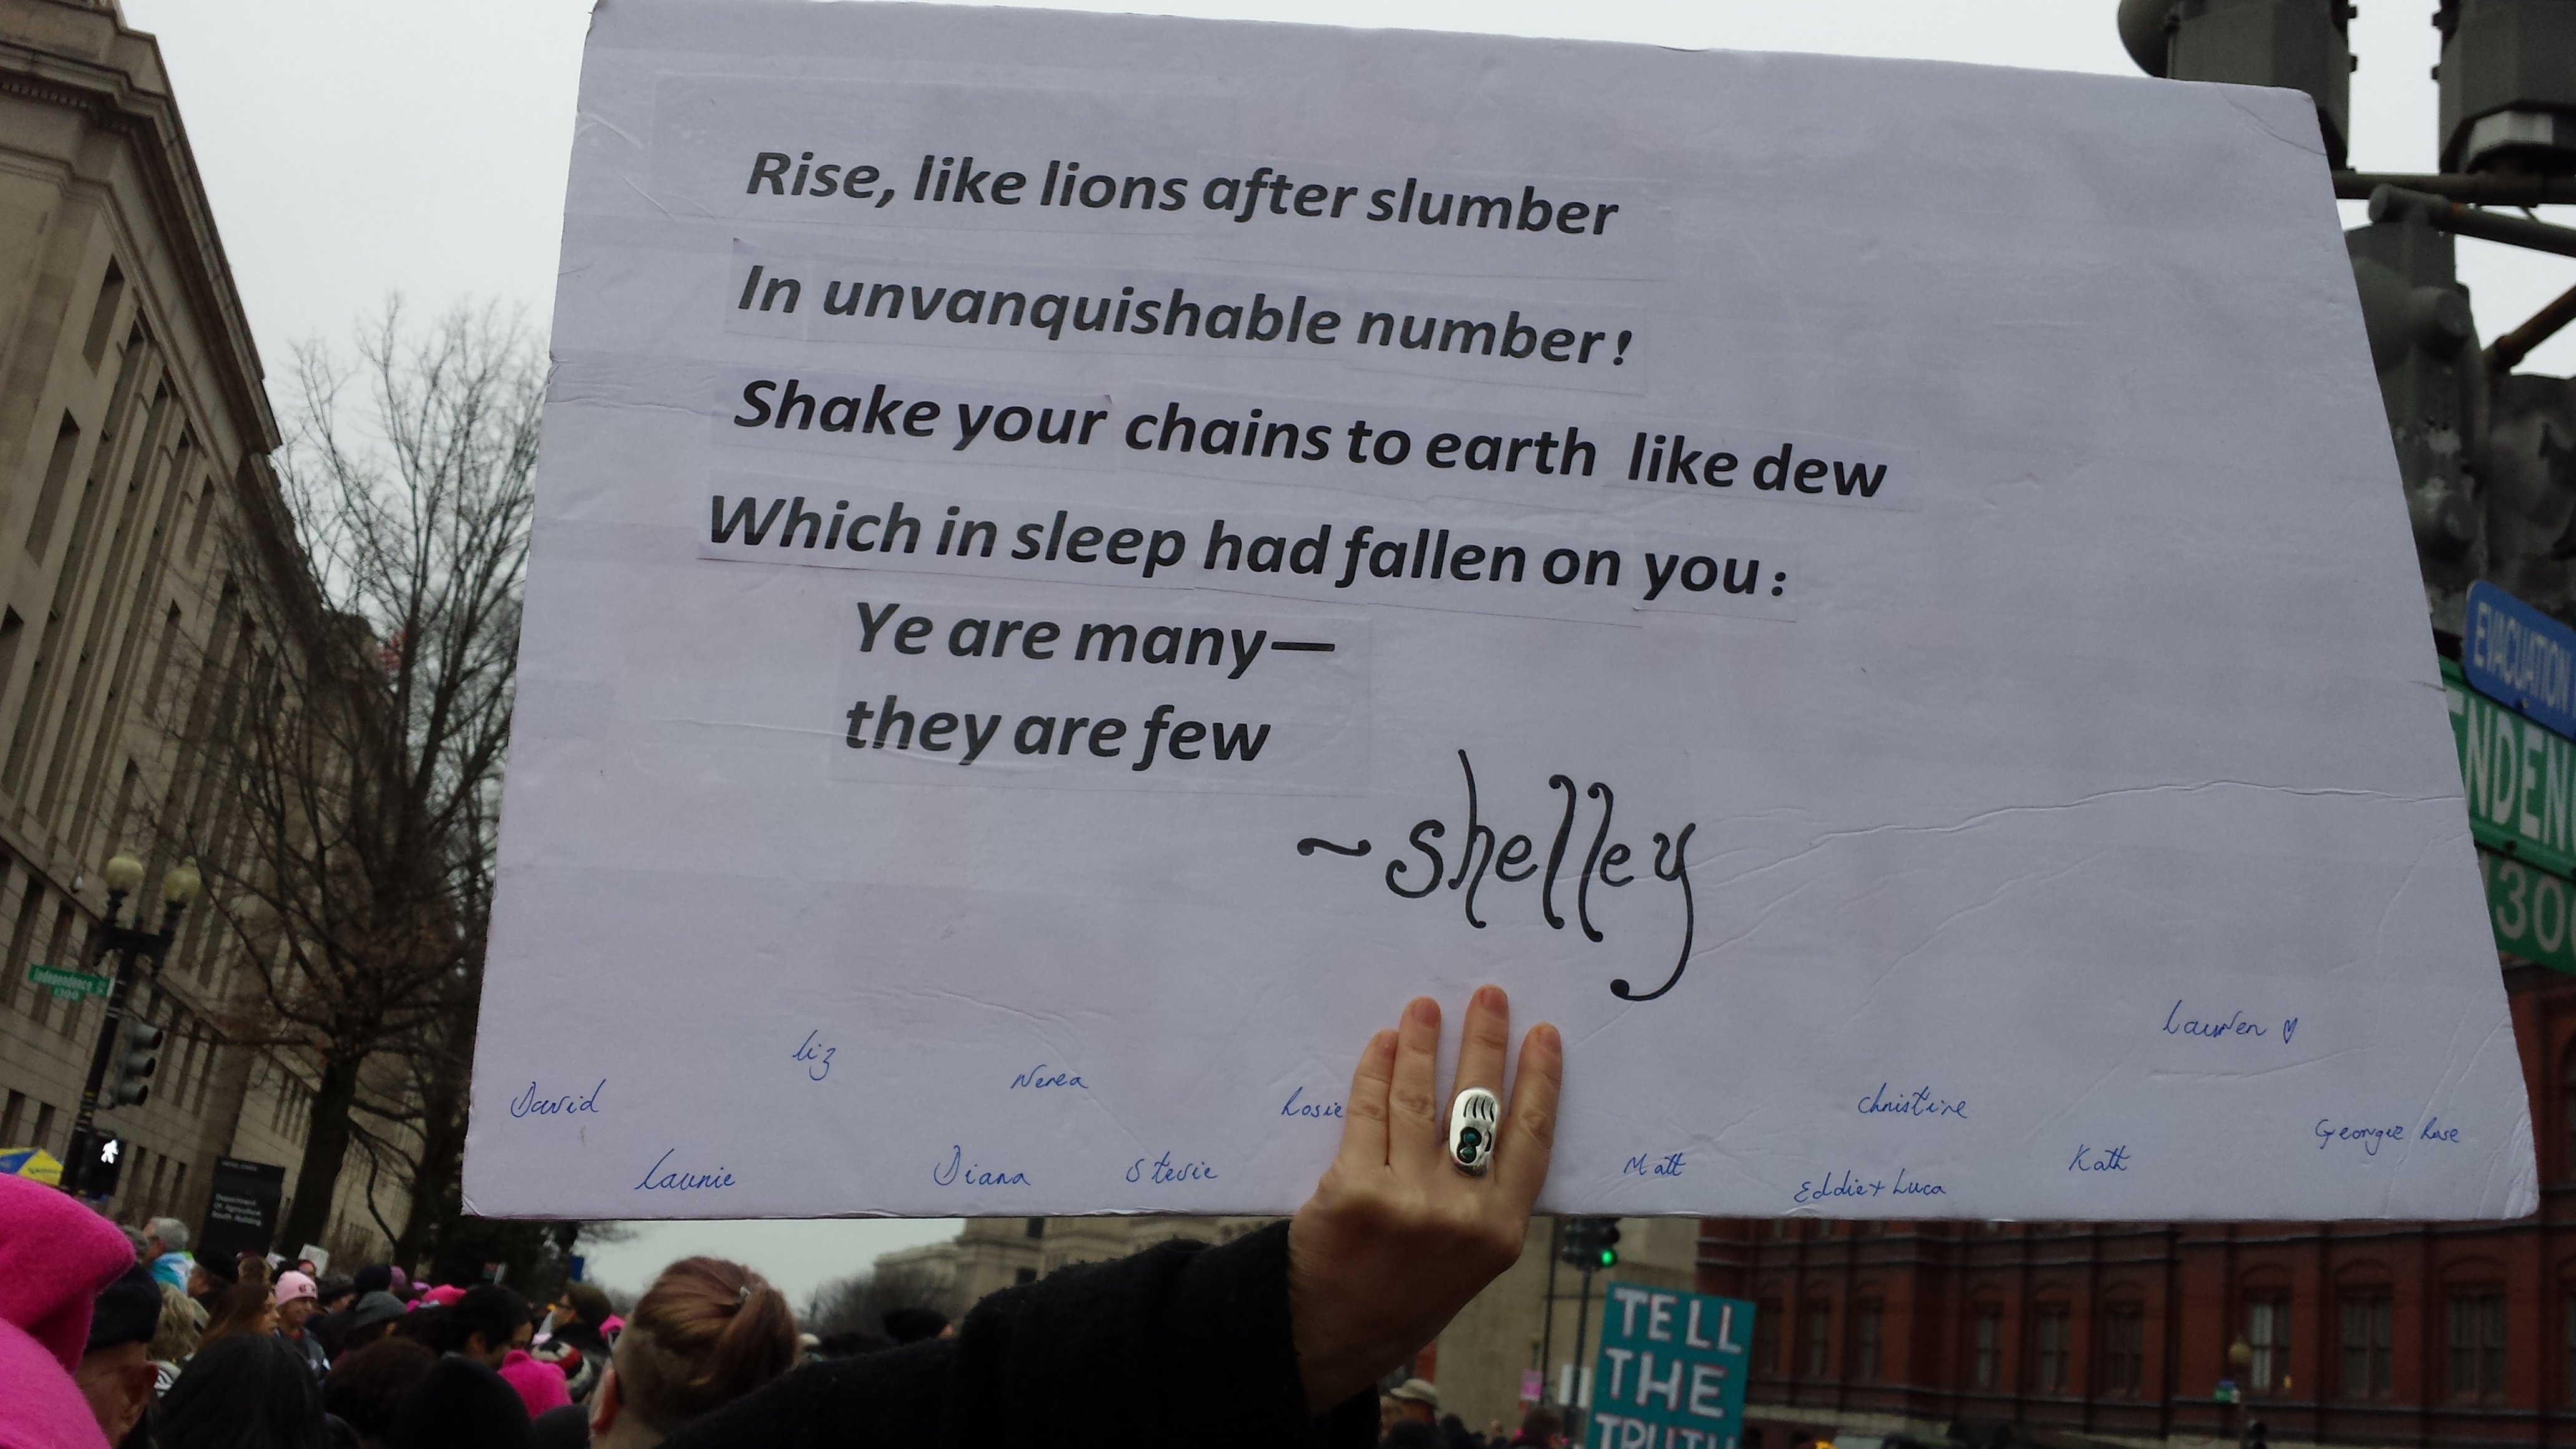 Rise, like lions after slumber
In unvanquishable number!
Shake your chains to earth like dew
Which in sleep had fallen on you:
Ye are many—
they are few
~shelley
Lauren ♡
liz
Nerea
David
Rosie
Christine
Georgie Rose
Launie
Diana
Stevie
Matt
Eddie + Luca
Kath
EVACUATION
NDEN
130
Independence
1300
Department
Of Agriculture
South Building
TELL
THE
TRUTH